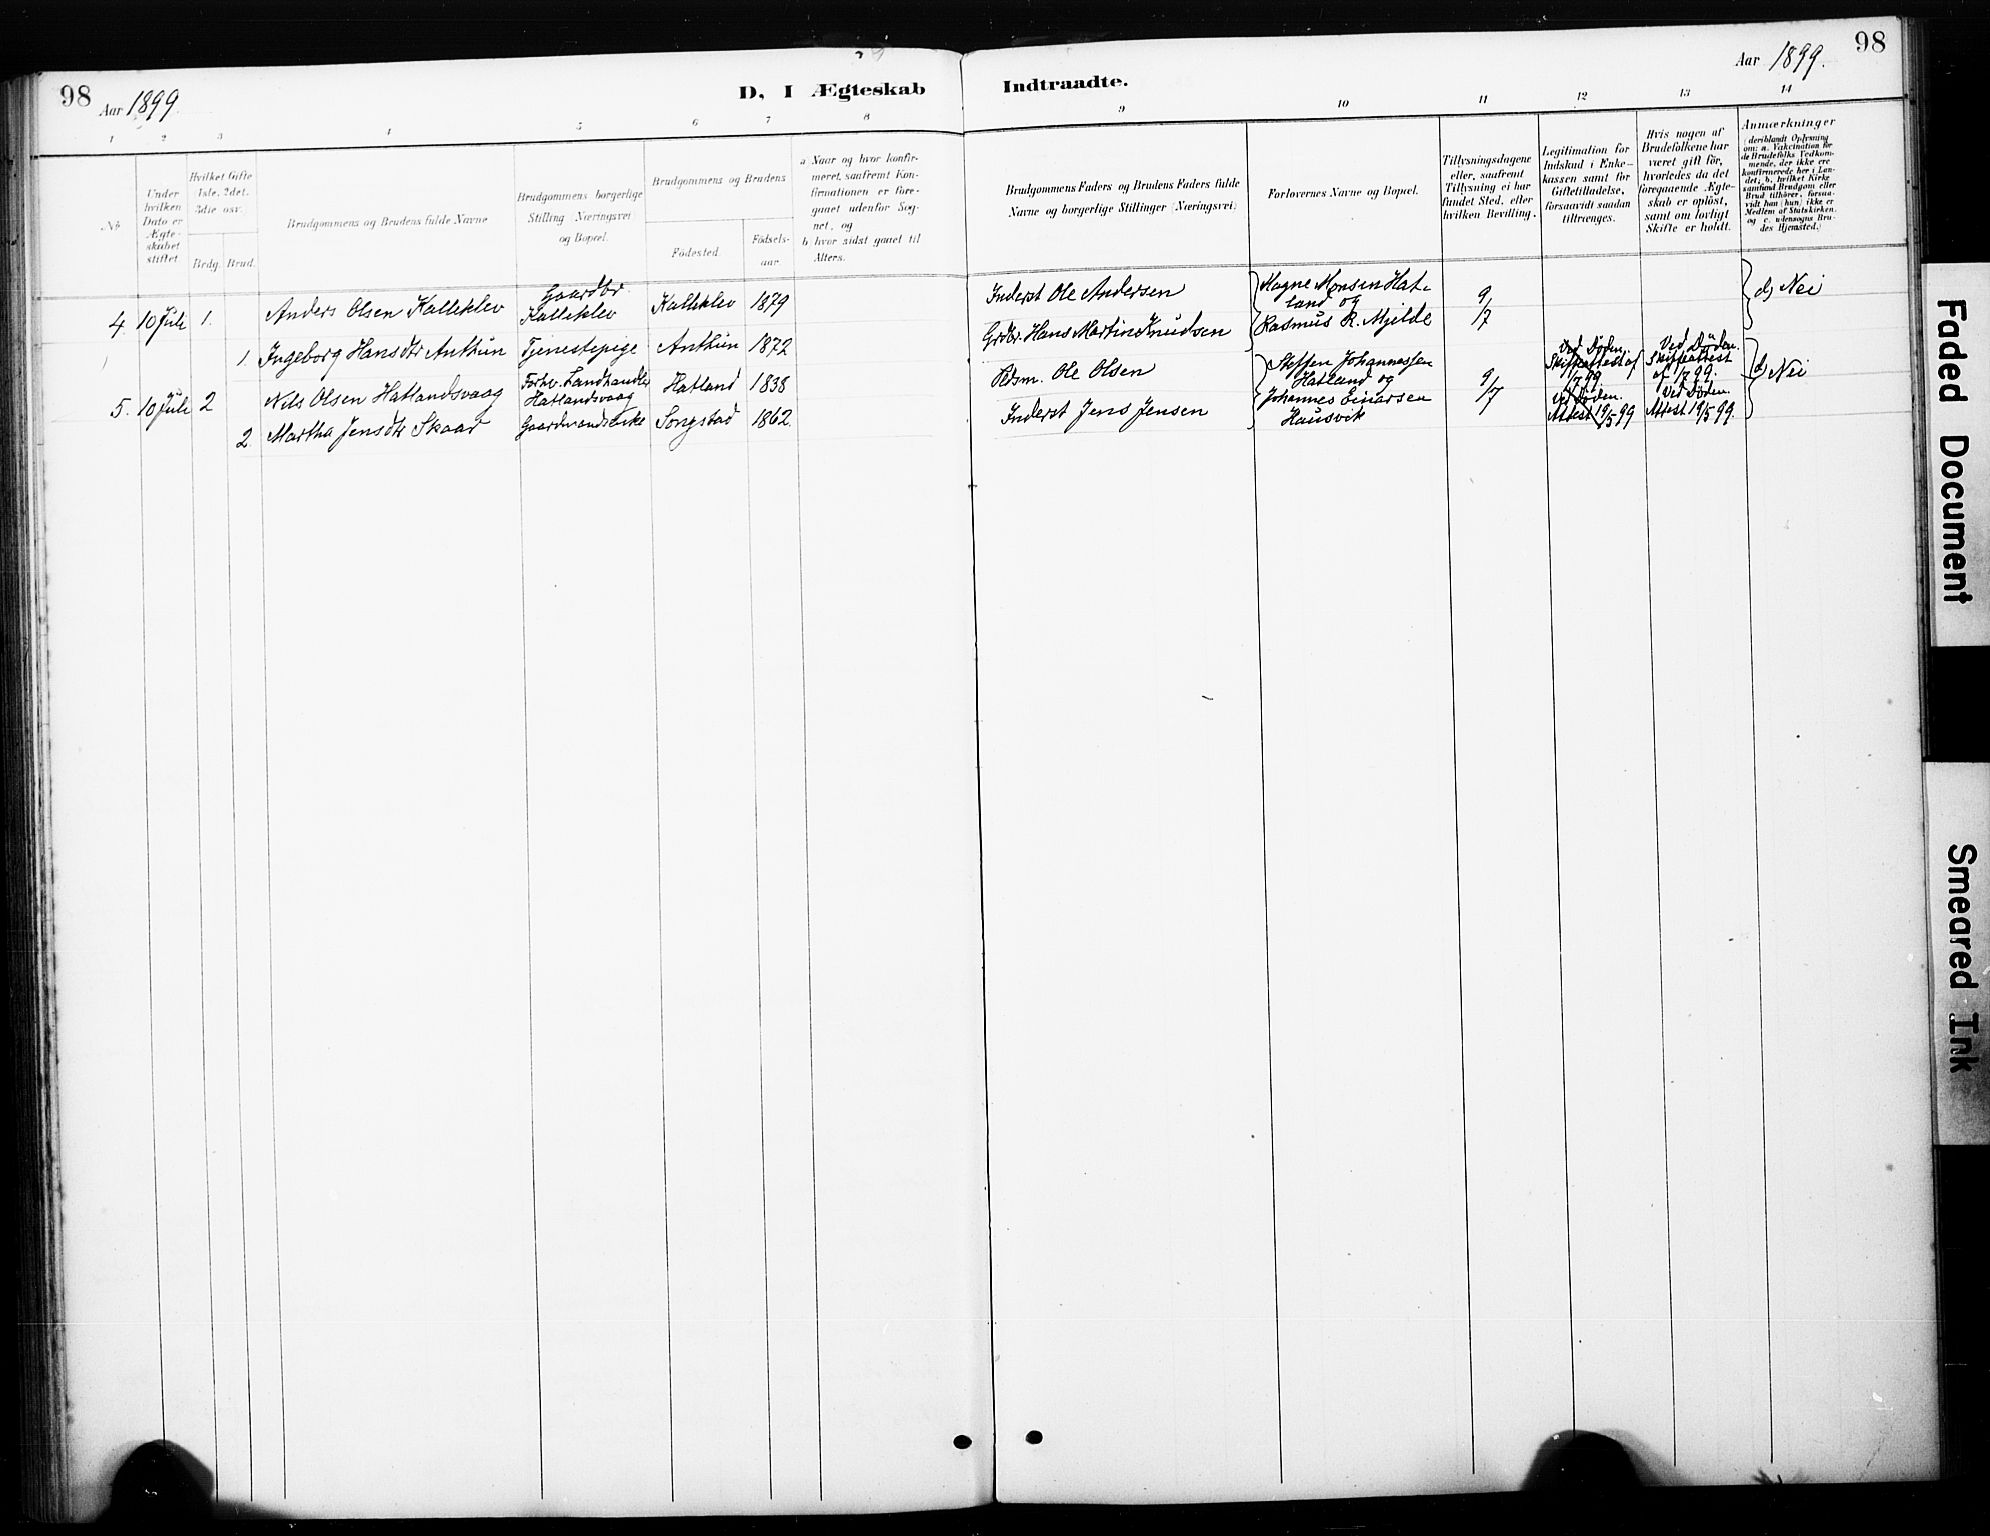 98 Aar 1899. D, I Ægteskab Indtraadte. Aar 1899. 98
1 2 3 4 5 6 7 8 9 10 11 12 13 14
№
Under hvilken Dato er Ægteskabet stiftet
Hvilket Gifte 1ste, 2det, 3die osv.
Brdg. Brud.
Brudgommens og Brudens fulde Navne
Brudgommens borgerlige Stilling (Næringsvei) og Bopæl.
Brudgommens og Brudens
Födested.
Födselsaar.
a Naar og hvor konfirmeret, saafremt Konfirmationen er foregaaet udenfor Sognet, og
b hvor sidst gaaet til Alters.
Brudgommens Faders og Brudens Faders fulde Navne og borgerlige Stillinger (Næringsvei)
Forlovernes Navne og Bopæl.
Tillysningsdagene eller, saafremt Tillysning ei har fundet Sted, efter hvilken Bevilling.
Legitimation for Indskud i Enkekassen samt for Giftetilladelse, forsaavidt saadan tiltrænges.
Hvis nogen af Brudefolkene har været gift før, hvorledes da det foregaaende Ægteskab er opløst, samt om lovligt Skifte er holdt.
Anmærkninger
(deriblandt Oplysning om: a. Vakcination for de Brudefolks Vedkommende, der ikke ere konfirmerede her i Landet; b. hvilket Kirkesamfund Brudgom eller Brud tilhörer, forsaavidt han (hun) ikke er Medlem af Statskirken, og c. udensogns Brudes Hjemsted.)
4. 10 Juli 1. Anders Olsen Kalleklev Gaardbr Kalleklev Kalleklev 1879 Inderst Ole Andersen
Magne Monsen Hatland og Rasmus R. Mjelde 9/7 d) Nei
1. Ingeborg Hansdtr Anthun Tjenestepige Anthun 1872 Grdbr. Hans Martin Knudsen
5. 10 Juli 2 Nils Olsen Hatlandsvaag Forhv. Landhandler Hatlandsvaag Hatland 1838 Pdsm. Ole Olsen
Steffen Johannessen Hatland og Johannes Einarsen Hausvik 9/7
Ved Døden. Skifteattest af 1/7 99. Ved Døden. Skifteattest af 1/7 99. d) Nei
2. Martha Jensdtr Skaar Gaardmandsenke Songstad 1862. Inderst Jens Jensen
Ved Døden. Attest 19/5 99 Ved Døden. Attest 19/5 99.
Faded Document
Smeared Ink